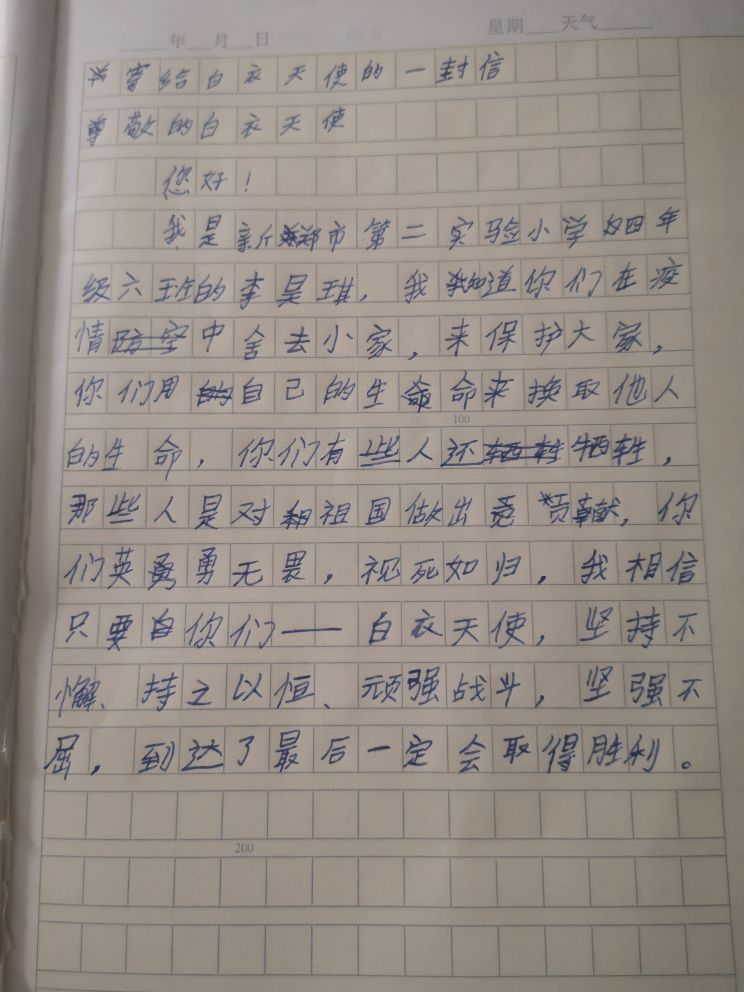 年 月 日 星期 天气
写给白衣天使的一封信
尊敬的白衣天使
您好！
我是新郑市第二实验小学四年
级六班的李昊琪，我知道你们在疫
情中舍去小家，来保护大家，
你们用自己的生命来换取他人
100
的生命，你们有些人还牺牲，
那些人是对祖国做出贡献，你
们英勇无畏，视死如归，我相信
只要你们——白衣天使，坚持不
懈、持之以恒、顽强战斗，坚强不
屈，到达了最后一定会取得胜利。
200